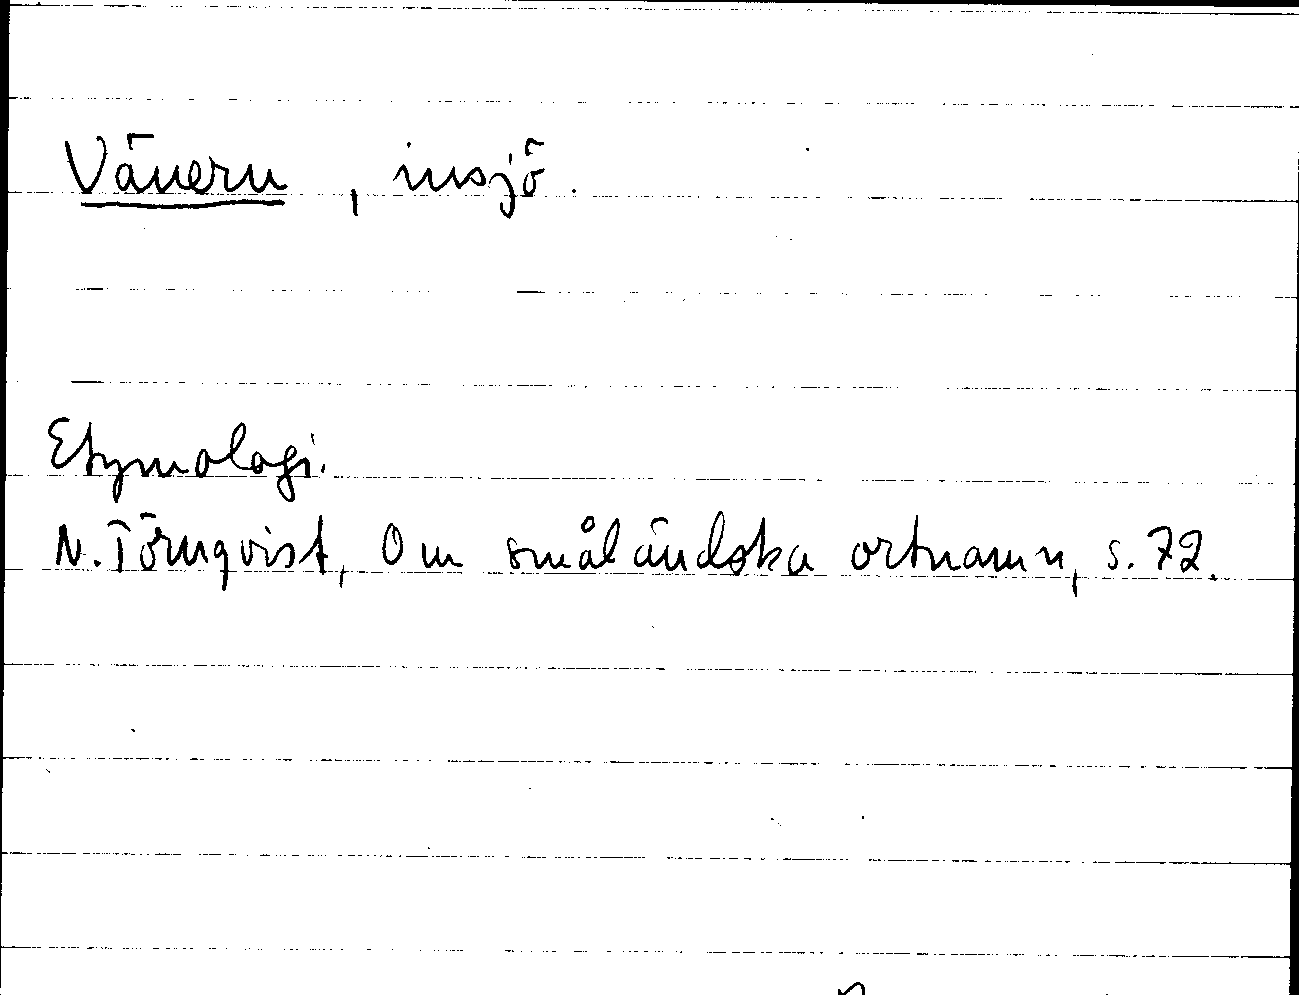 Vänern, insjö.
Etymologi.
N. Törnqvist, Om småländska ortnamn, s. 72.